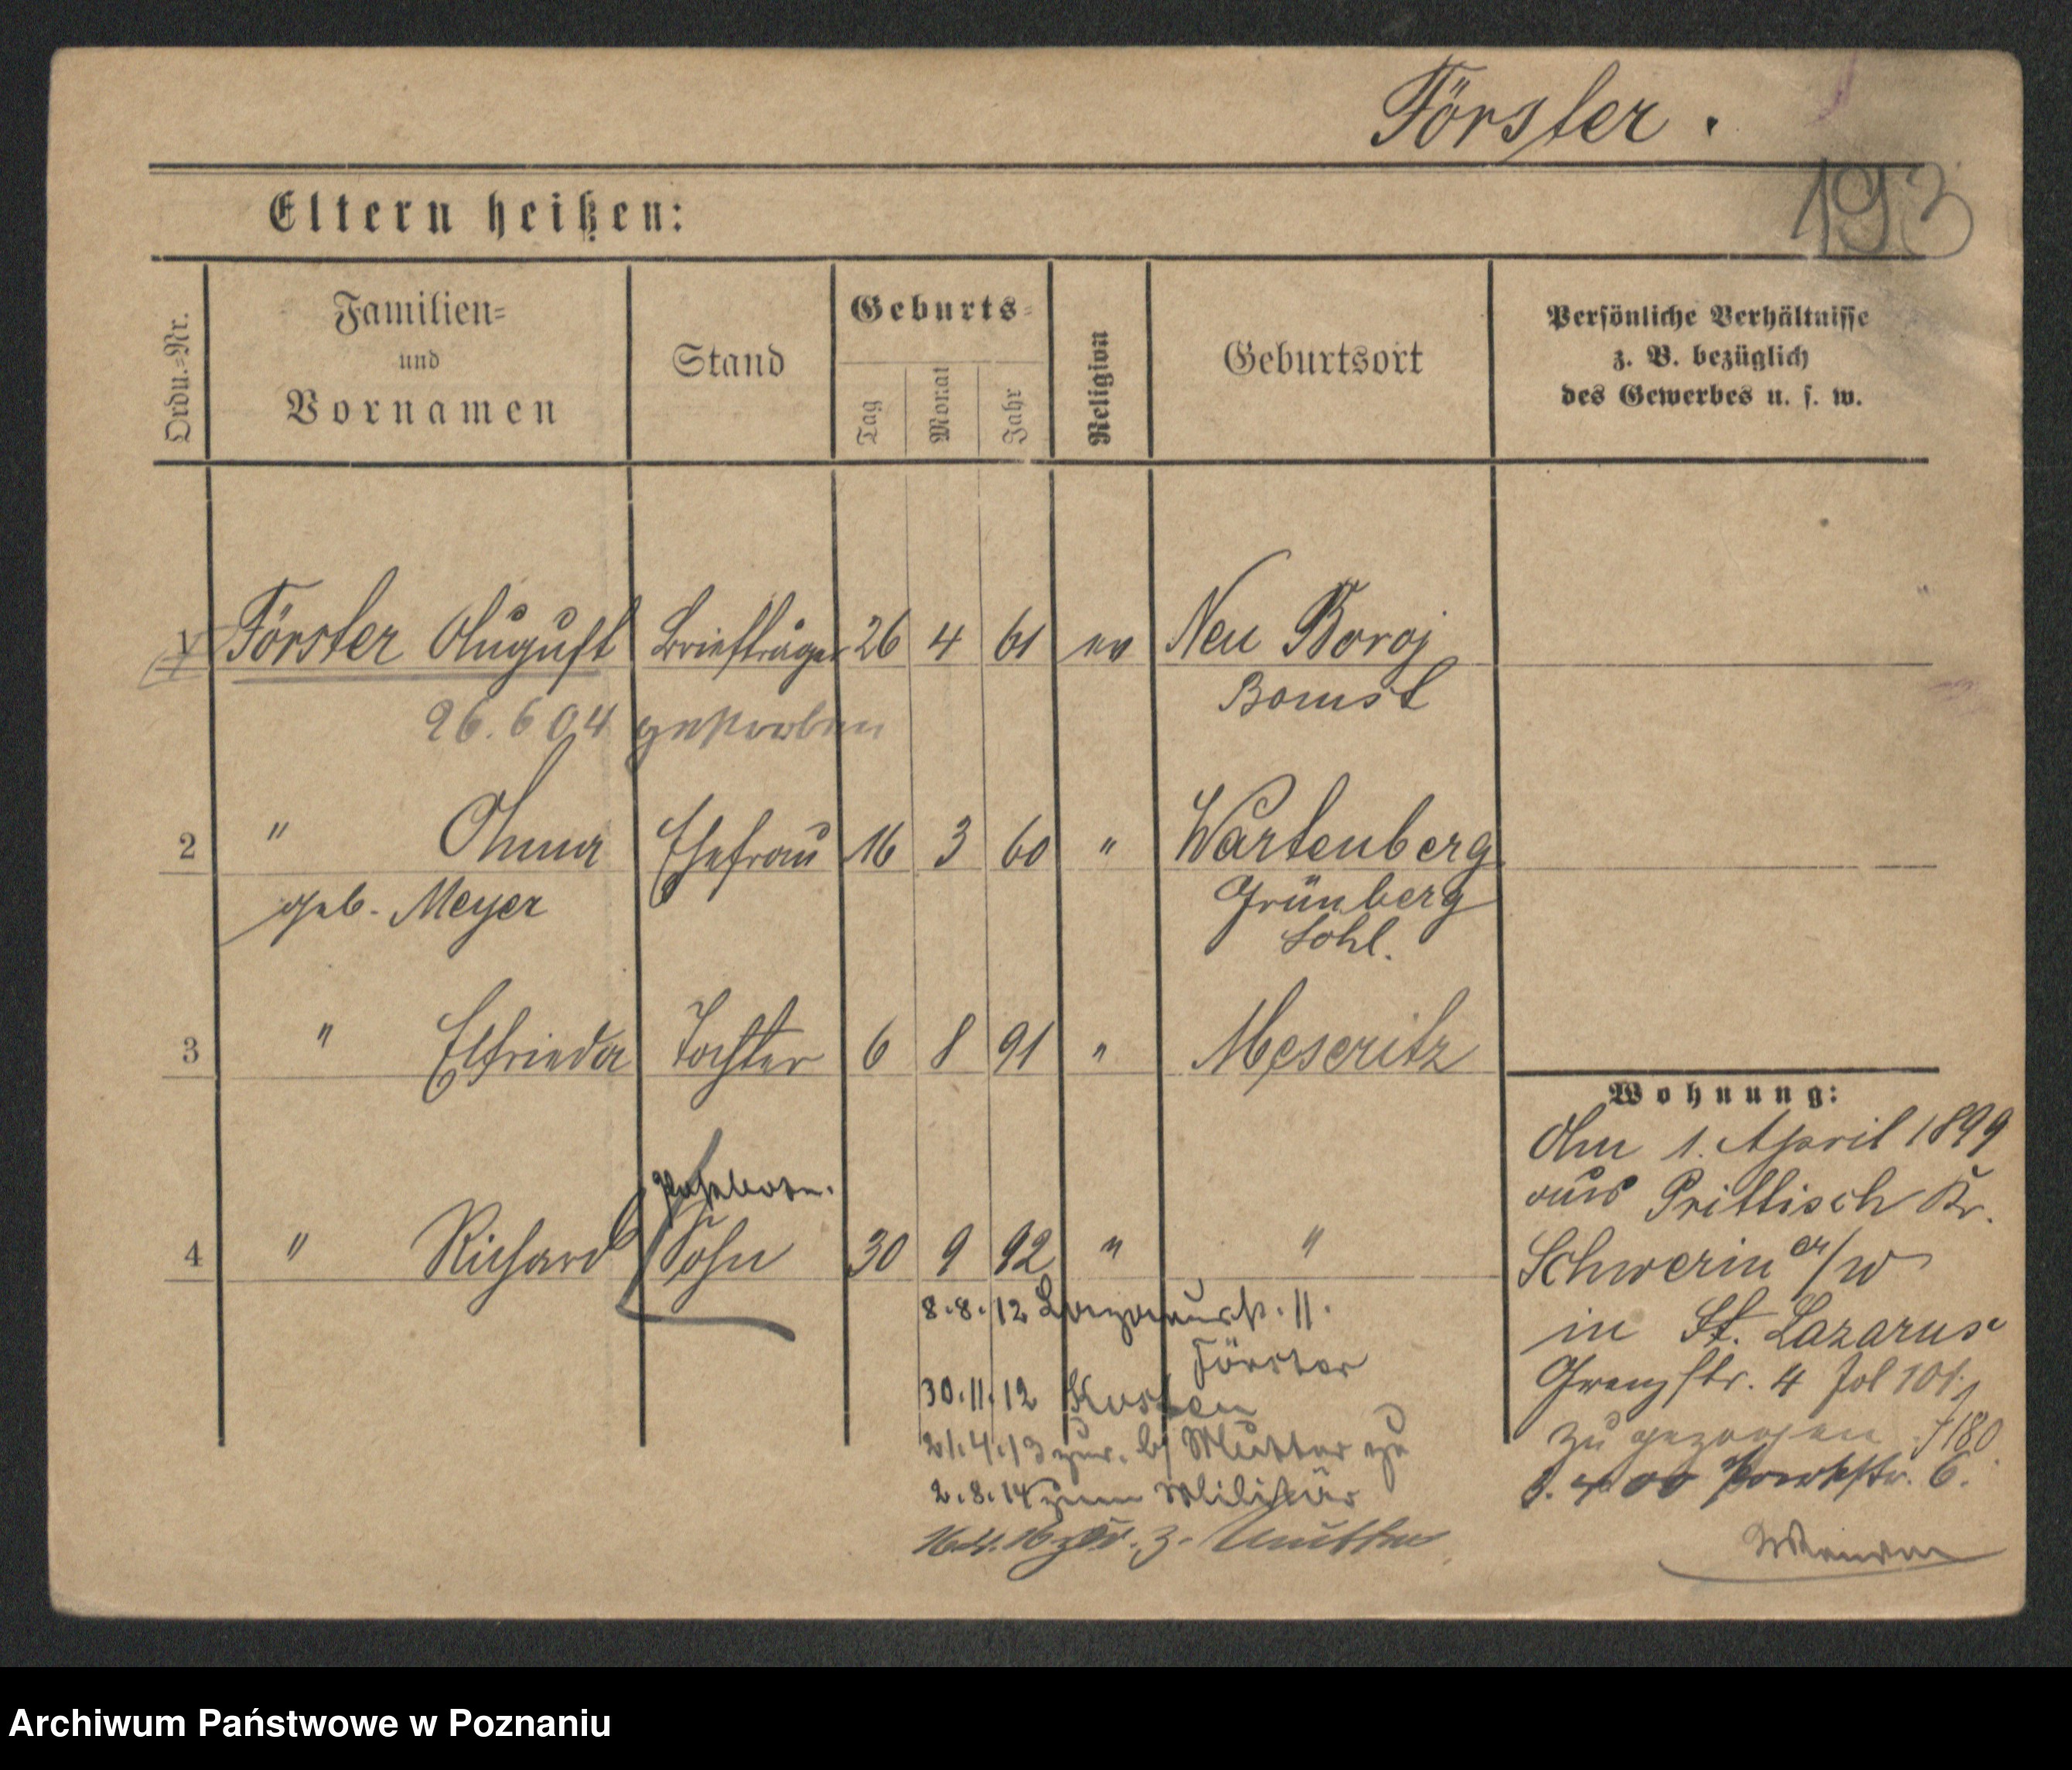 Förster.
193
Eltern heißen:
Ordn.-Nr.
Familien-
und
Vornamen
Stand
Geburts-
Tag
Monat
Jahr
Religion
Geburtsort
Persönliche Verhältnisse
z. B. bezüglich
des Gewerbes u. s. w.
1 Förster August Briefträger 26 4 61 ev Neu Boruj
Bomst
26. 6 04 gestorben
2 " Anna Ehefrau 16 3 60 " Wartenberg
geb. Meyer Grünberg
Schl.
3 " Elfrieda Tochter 6 8 91 " Meseritz
4 " Richard Sohn 30 9 92 " "
8.8.12 11.
Förster
30.11.12 Kosten
21.4.13 zur. b/ Mutter zu
2.8.14 zum Militär
zur. z. Mutter
Wohnung:
Am 1. April 1899
aus Prittisch Kr.
Schwerin a/W
in St. Lazarus
Grenzstr. 4 Fol 101
zugezogen
00 Parkstr. 6.
Archiwum Państwowe w Poznaniu